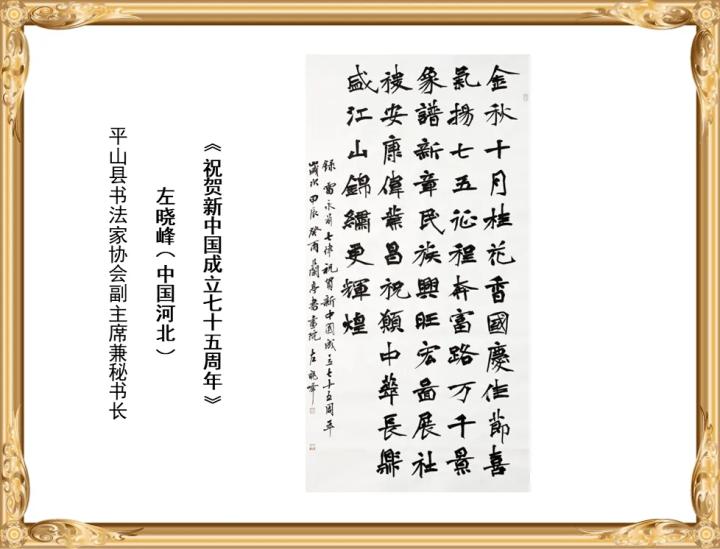 金秋十月桂花香國慶佳節喜
氣揚七五征程奔富路万千景
象譜新章民族興旺宏圖展社
稷安康偉業昌祝願中華長鼎
盛江山錦繡更輝煌
録雷永前七律祝賀新中國成立七十五周年
歲次甲辰癸酉蘭亭書畫院左曉峰
《祝贺新中国成立七十五周年》
左晓峰（中国河北）
平山县书法家协会副主席兼秘书长